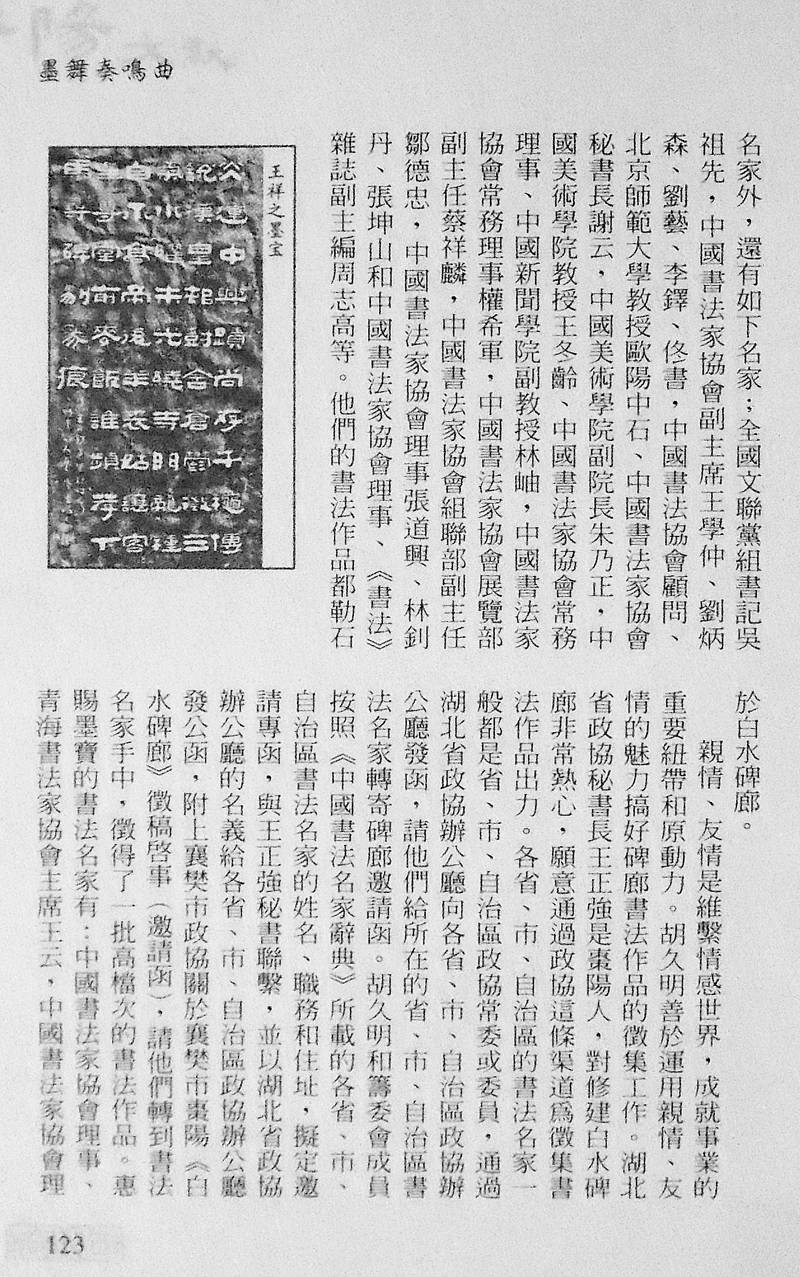 墨舞奏鳴曲
名家外，還有如下名家；全國文聯黨組書記吳
祖先，中國書法家協會副主席王學仲、劉炳
森、劉藝、李鐸、佟書，中國書法協會顧問、
北京師範大學教授歐陽中石、中國書法家協會
秘書長謝云，中國美術學院副院長朱乃正，中
國美術學院教授王冬齡、中國書法家協會常務
理事、中國新聞學院副教授林岫，中國書法家
協會常務理事權希軍，中國書法家協會展覽部
副主任蔡祥麟，中國書法家協會組聯部副主任
鄒德忠，中國書法家協會理事張道興、林釗
丹、張坤山和中國書法家協會理事、《書法》
雜誌副主編周志高等。他們的書法作品都勒石
王祥之墨宝
於白水碑廊。
親情、友情是維繫情感世界，成就事業的
重要紐帶和原動力。胡久明善於運用親情、友
情的魅力搞好碑廊書法作品的徵集工作。湖北
省政協秘書長王正強是棗陽人，對修建白水碑
廊非常熱心，願意通過政協這條渠道爲徵集書
法作品出力。各省、市、自治區的書法名家一
般都是省、市、自治區政協常委或委員，通過
湖北省政協辦公廳向各省、市、自治區政協辦
公廳發函，請他們給所在的省、市、自治區書
法名家轉寄碑廊邀請函。胡久明和籌委會成員
按照《中國書法名家辭典》所載的各省、市、
自治區書法名家的姓名、職務和住址，擬定邀
請專函，與王正強秘書聯繫，並以湖北省政協
辦公廳的名義給各省、市、自治區政協辦公廳
發公函，附上襄樊市政協關於襄樊市棗陽《白
水碑廊》徵稿啓事（邀請函），請他們轉到書法
名家手中，徵得了一批高檔次的書法作品。惠
賜墨寶的書法名家有：中國書法家協會理事、
青海書法家協會主席王云，中國書法家協會理
123